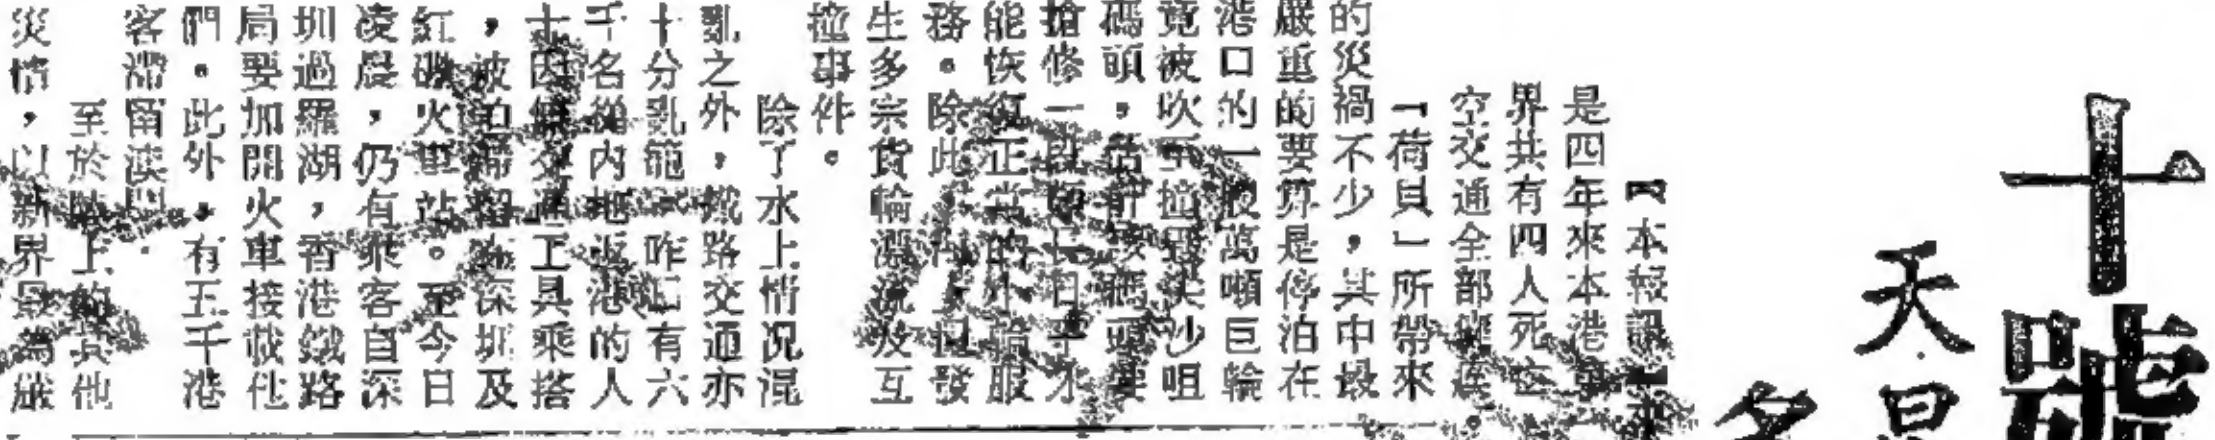 十
天
【本報訊】
是四年來本港
界共有四人死亡
空交通全部癱瘓。
「荷貝」所帶來
的災禍不少，其中最
嚴重的要算是停泊在
港口的一艘萬噸巨輪
竟被吹至撞毀尖沙咀
碼頭，估計該碼頭要
搶修一段頗長日子才
能恢復正常的外輪服
務。除此發
生多宗貨輪漂流及互
撞事件。
除了水上情況混
亂之外，鐵路交通亦
十分亂籠，昨日有六
千名從內地返港的人
士因缺交通工具乘搭
，被迫滯留在深圳及
紅磡火車站。至今日
凌晨，仍有乘客自深
圳過羅湖，香港鐵路
局要加開火車接載他
們。此外，有五千港
客滯留澳門。
至於陸上的其他
災情，以新界最為嚴